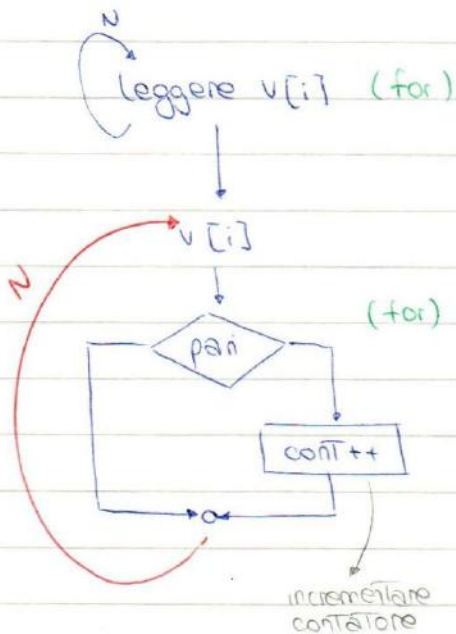 N
leggere v[i] (for)
v[i]
N
(for)
pari
cont++
incrementare
contatore